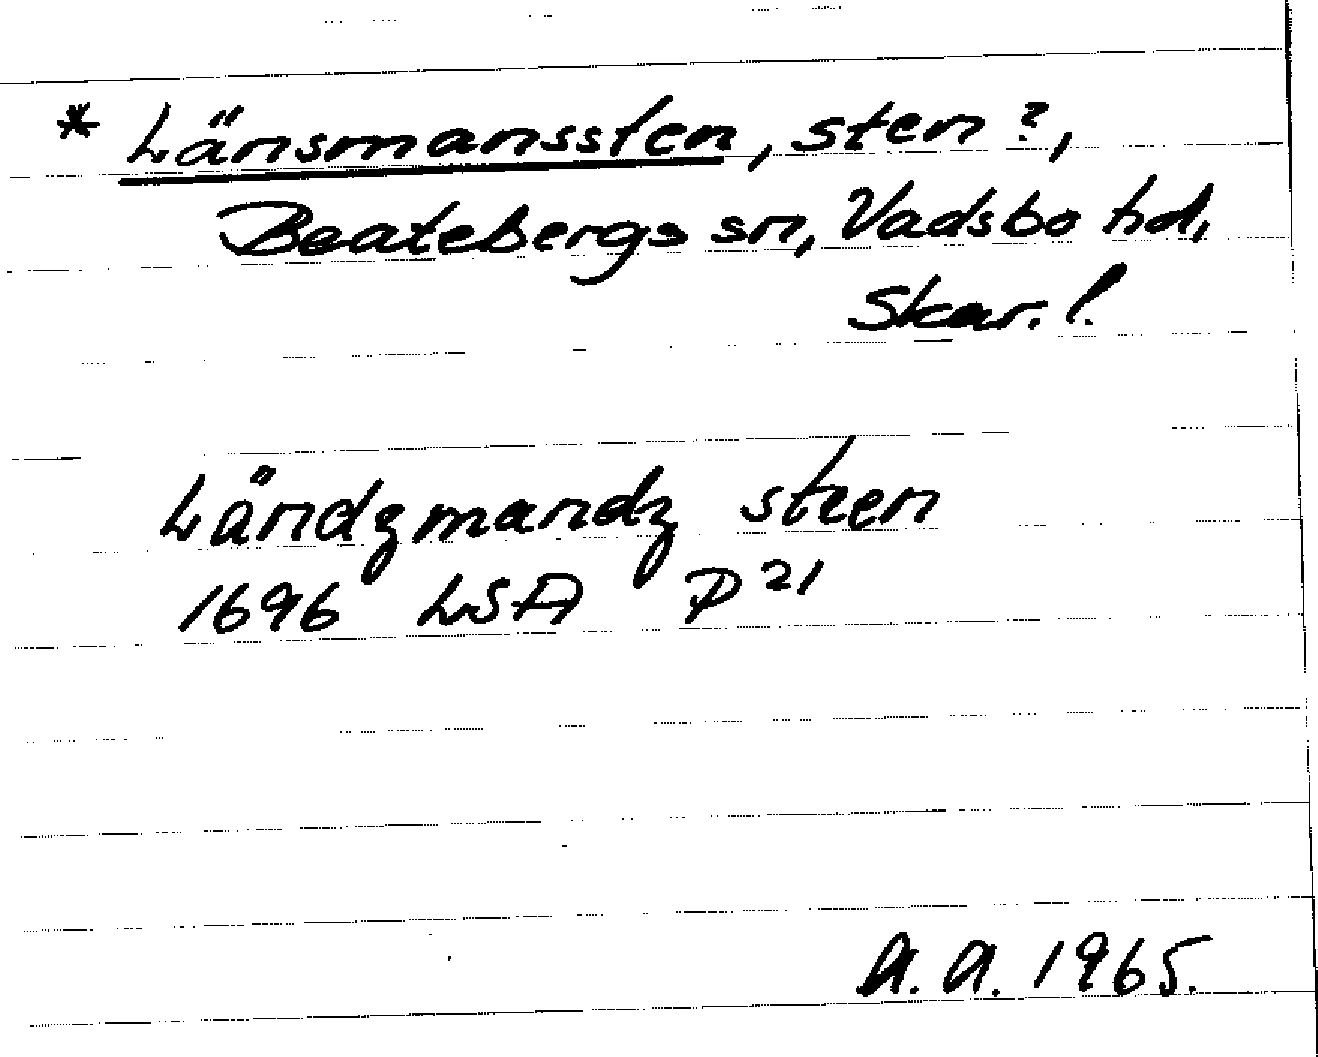 * Länsmanssten, sten?,
Beatebergs sn, Vadsbo hd,
Skar. l.
Ländzmandz steen
1696 LSA P 21
A. A. 1965.